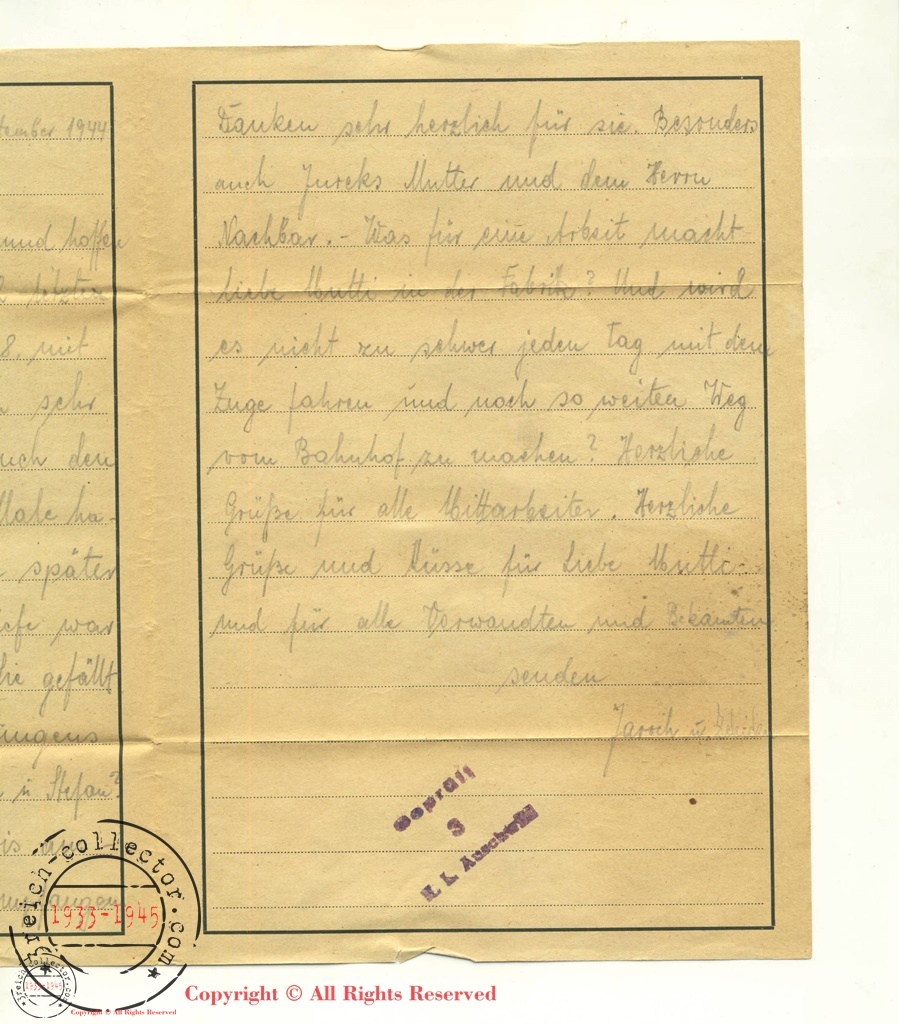 tember 1944
und hoffen
letzten
8. mit
sehr
uch den
Male ha-
später
iefe war
gefällt
ungens
u Stefan?
Danken sehr herzlich für sie. Besonders
auch Jureks Mutter und dem Herrn
Nachbar. – Was für eine Arbeit macht
Liebe Mutti in der Fabrik? Und wird
es nicht zu schwer jeden Tag mit dem
Zuge fahren und noch so weiten Weg
vom Bahnhof zu machen? Herzliche
Grüße für alle Mittarbeiter. Herzliche
Grüße und Küsse für Liebe Mutti
und für alle Verwandten und Bekannten
senden
u
Geprüft
3
K. L. Auschwitz
3reich-collector.com
1933-1945
3reich-collector.com
1933-1945
Copyright © All Rights Reserved
Copyright © All Rights Reserved